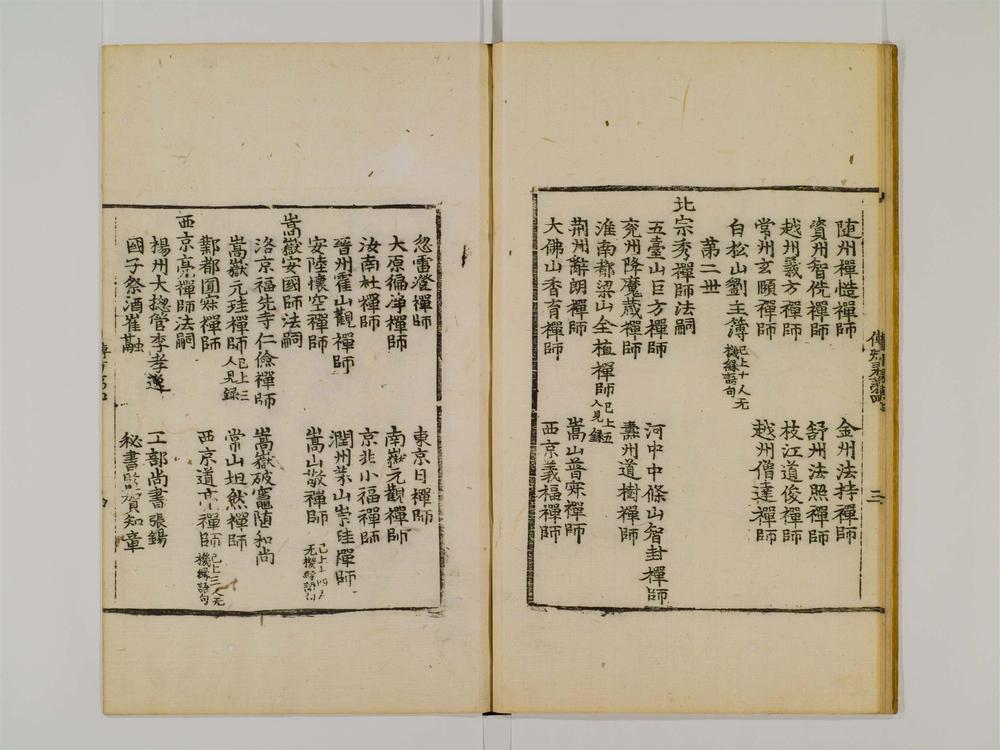 随州禪慥禪師 金州法持禪師
資州智侁禪師 舒州法照禪師
越州義方禪師 枝江道俊禪師
常州玄賾禪師 越州僧達禪師
白松山劉主簿 已上十人无機緣語句
第二世
北宗秀禪師法嗣
五臺山巨方禪師 河中中條山智封禪師
兖州降魔蔵禪師 壽州道樹禪師
淮南都梁山全植禪師 已上五人見錄
荆州辭朗禪師 嵩山普寂禪師
大佛山香育禪師 西京義福禪師
忽雷澄禪師 東京日禪師
大原徧淨禪師 南嶽元觀禪師
汝南杜禪師 京兆小福禪師
晉州霍山觀禪師 潤州茅山崇珪禪師
安陸懷空禪師 嵩山敬禪師 已上十四人无機緣語句
嵩嶽安國師法嗣
洛京福先寺仁儉禪師 嵩嶽破竈堕和尚
嵩嶽元珪禪師 已上三人見録 常山坦然禪師
鄴都圓寂禪師 西京道亮禪師 已上三人无機緣語句
西京亮禪師法嗣
楊州大揔管李孝逸 工部尚書張錫
國子祭酒崔融 秘書監賀知章
三